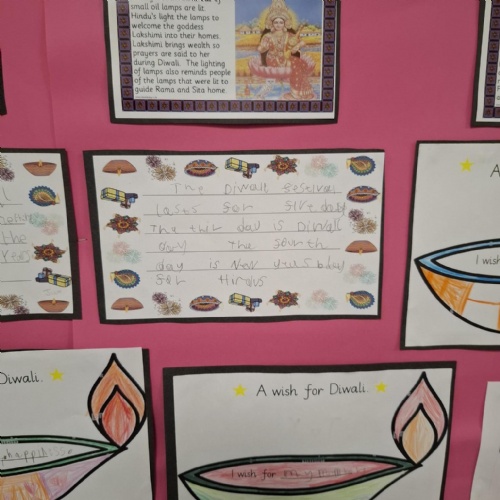 small oil lamps are lit.
Hindu's light the lamps to
welcome the goddess
Lakshmi into their homes.
Lakshmi brings wealth so
prayers are said to her
during Diwali. The lighting
of lamps also reminds people
of the lamps that were lit to
guide Rama and Sita home.
the
The Diwali
lasts for five days
The thir day is Diwali
day The fourth
day is New
for Hindus
A
I wish
Diwali.
happiness
A wish for Diwali.
I wish for